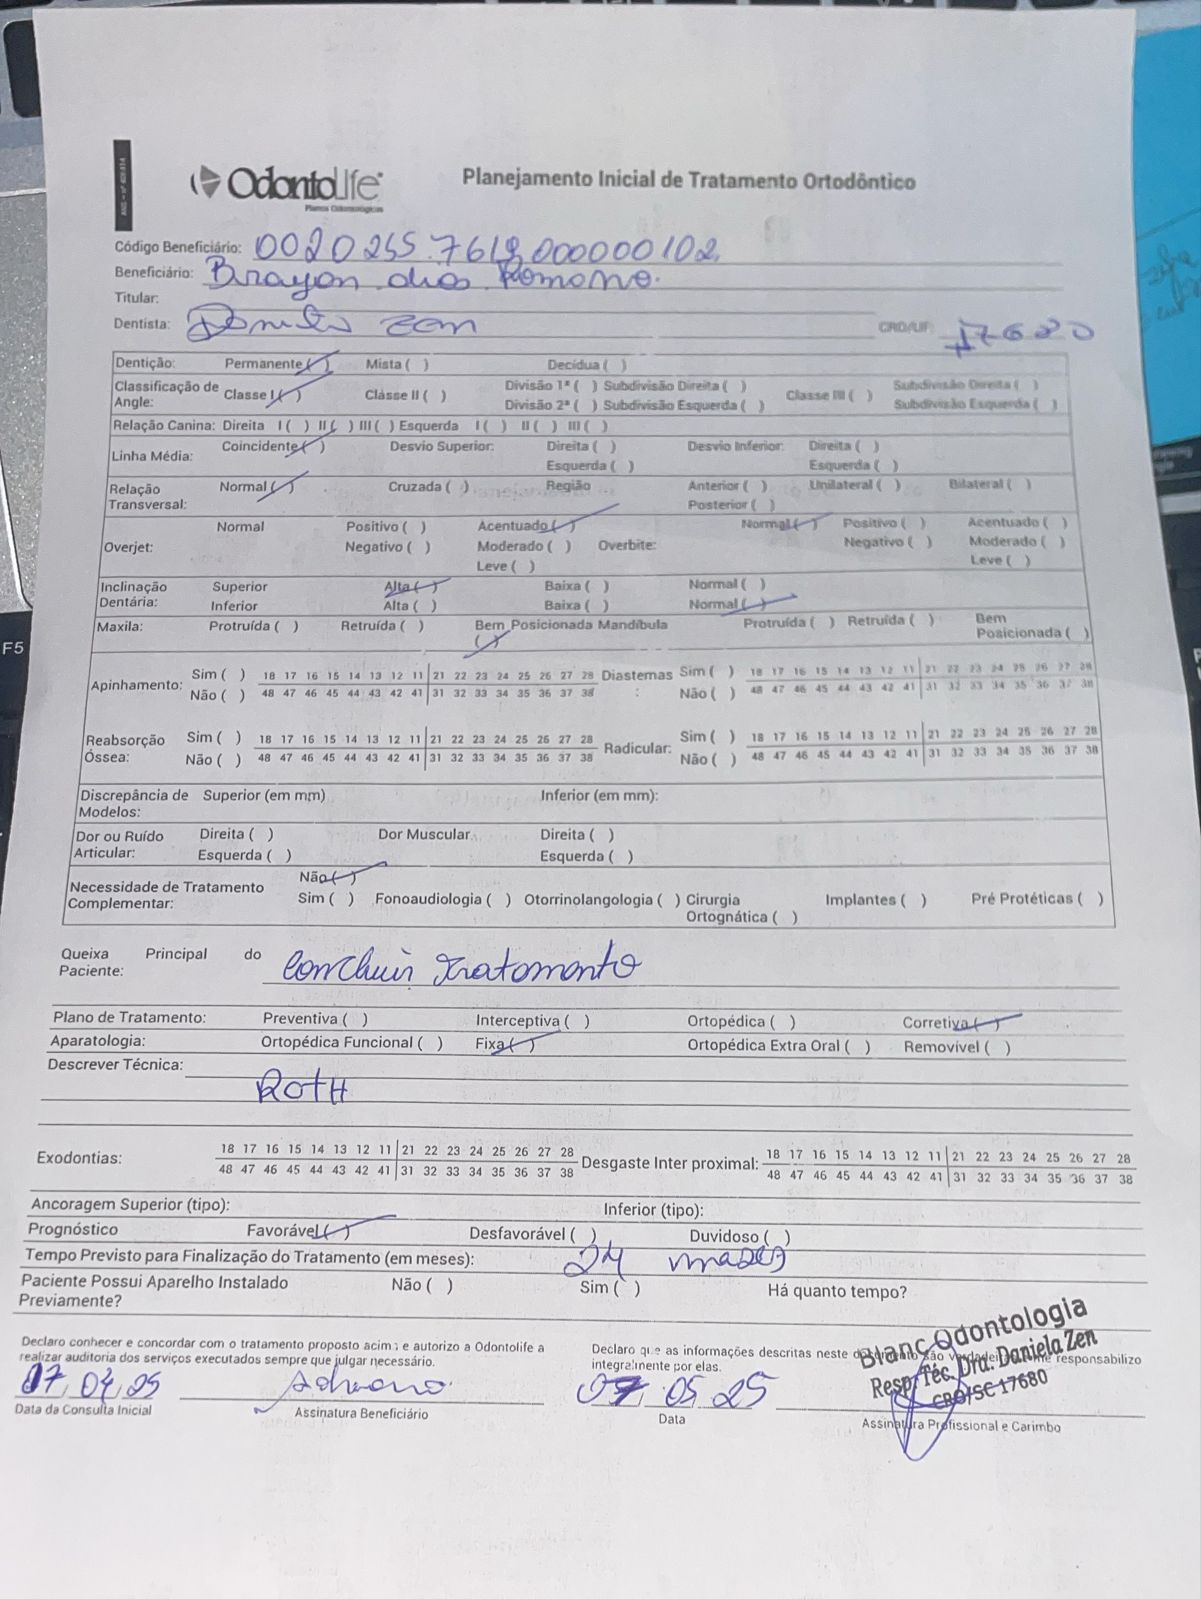 OdontoLife
Planos Odontológicos
Planejamento Inicial de Tratamento Ortodôntico
Código Beneficiário: 0020255.7619.000000102
Beneficiário: Brayon dias Romono.
Titular:
Dentista: Zen CRO/UF: 17680
Dentição: Permanente ( ) Mista ( ) Decídua ( )
Classificação de Angle: Classe I ( ) Classe II ( ) Divisão 1ª ( ) Subdivisão Direita ( ) Classe III ( ) Subdivisão Direita ( )
Divisão 2ª ( ) Subdivisão Esquerda ( ) Subdivisão Esquerda ( )
Relação Canina: Direita I ( ) II ( ) III ( ) Esquerda I ( ) II ( ) III ( )
Linha Média: Coincidente ( ) Desvio Superior: Direita ( ) Desvio Inferior: Direita ( )
Esquerda ( ) Esquerda ( )
Relação Transversal: Normal ( ) Cruzada ( ) Região Anterior ( ) Unilateral ( ) Bilateral ( )
Posterior ( )
Overjet: Normal Positivo ( ) Acentuado ( ) Overbite: Normal ( ) Positivo ( ) Acentuado ( )
Negativo ( ) Moderado ( ) Negativo ( ) Moderado ( )
Leve ( ) Leve ( )
Inclinação Dentária: Superior Alta ( ) Baixa ( ) Normal ( )
Inferior Alta ( ) Baixa ( ) Normal ( )
Maxila: Protruída ( ) Retruída ( ) Bem Posicionada ( ) Mandíbula Protruída ( ) Retruída ( ) Bem Posicionada ( )
Apinhamento: Sim ( ) 18 17 16 15 14 13 12 11 21 22 23 24 25 26 27 28 Diastemas: Sim ( ) 18 17 16 15 14 13 12 11 21 22 23 24 25 26 27 28
Não ( ) 48 47 46 45 44 43 42 41 31 32 33 34 35 36 37 38 Não ( ) 48 47 46 45 44 43 42 41 31 32 33 34 35 36 37 38
Reabsorção Óssea: Sim ( ) 18 17 16 15 14 13 12 11 21 22 23 24 25 26 27 28 Radicular: Sim ( ) 18 17 16 15 14 13 12 11 21 22 23 24 25 26 27 28
Não ( ) 48 47 46 45 44 43 42 41 31 32 33 34 35 36 37 38 Não ( ) 48 47 46 45 44 43 42 41 31 32 33 34 35 36 37 38
Discrepância de Modelos: Superior (em mm) Inferior (em mm):
Dor ou Ruído Articular: Direita ( ) Dor Muscular Direita ( )
Esquerda ( ) Esquerda ( )
Necessidade de Tratamento Complementar: Não ( )
Sim ( ) Fonoaudiologia ( ) Otorrinolangologia ( ) Cirurgia Ortognática ( ) Implantes ( ) Pré Protéticas ( )
Queixa Principal do Paciente: Concluir tratamento
Plano de Tratamento: Preventiva ( ) Interceptiva ( ) Ortopédica ( ) Corretiva ( )
Aparatologia: Ortopédica Funcional ( ) Fixa ( ) Ortopédica Extra Oral ( ) Removivel ( )
Descrever Técnica:
Roth
Exodontias: 18 17 16 15 14 13 12 11 21 22 23 24 25 26 27 28 Desgaste Inter proximal: 18 17 16 15 14 13 12 11 21 22 23 24 25 26 27 28
48 47 46 45 44 43 42 41 31 32 33 34 35 36 37 38 48 47 46 45 44 43 42 41 31 32 33 34 35 36 37 38
Ancoragem Superior (tipo): Inferior (tipo):
Prognóstico Favorável ( ) Desfavorável ( ) Duvidoso ( )
Tempo Previsto para Finalização do Tratamento (em meses): 24 meses
Paciente Possui Aparelho Instalado Previamente? Não ( ) Sim ( ) Há quanto tempo?
Declaro conhecer e concordar com o tratamento proposto acima e autorizo a Odontolife a
realizar auditoria dos serviços executados sempre que julgar necessário.
Declaro que as informações descritas neste documento são verdadeiras e me responsabilizo
integralmente por elas.
Blanc Odontologia
Resp. Téc. Dra. Daniela Zen
CRO/SC 17680
07 04 25 Adriano 07 05 25
Data da Consulta Inicial Assinatura Beneficiário Data Assinatura Profissional e Carimbo
F5